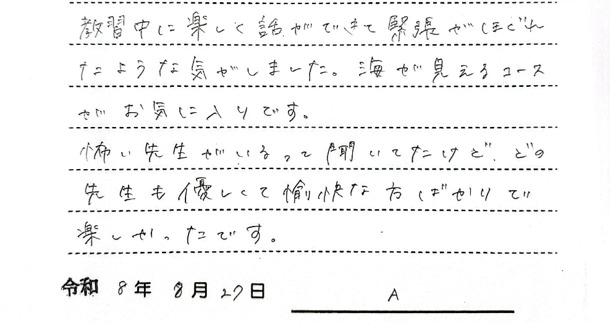 教習中に楽しく話ができて緊張がほぐれ
たような気がしました。海が見えるコース
がお気に入りです。
怖い先生がいるって聞いてたけど、どの
先生も優しくて愉快な方ばかりで
楽しかったです。
令和 8年 8月27日 A